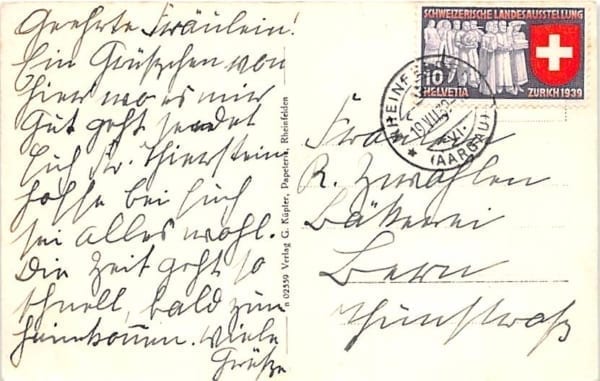 Geehrte Fräulein!
Ein Grüßchen von
hier wo es mir
gut geht sendet
Euch Fr. Thierstein
hoffe bei Euch
sei alles wohl.
Die Zeit geht so
schnell, bald zum
heimkommen. Viele
Grüße
n 02559 Verlag G. Küpfer, Papeterie, Rheinfelden
SCHWEIZERISCHE LANDESAUSSTELLUNG
10
HELVETIA ZÜRICH 1939
RHEINFELDEN
19.VII.39
(AARGAU)
Fräulein
R. Zwahlen
Bäkerei
Bern
Thunstraß